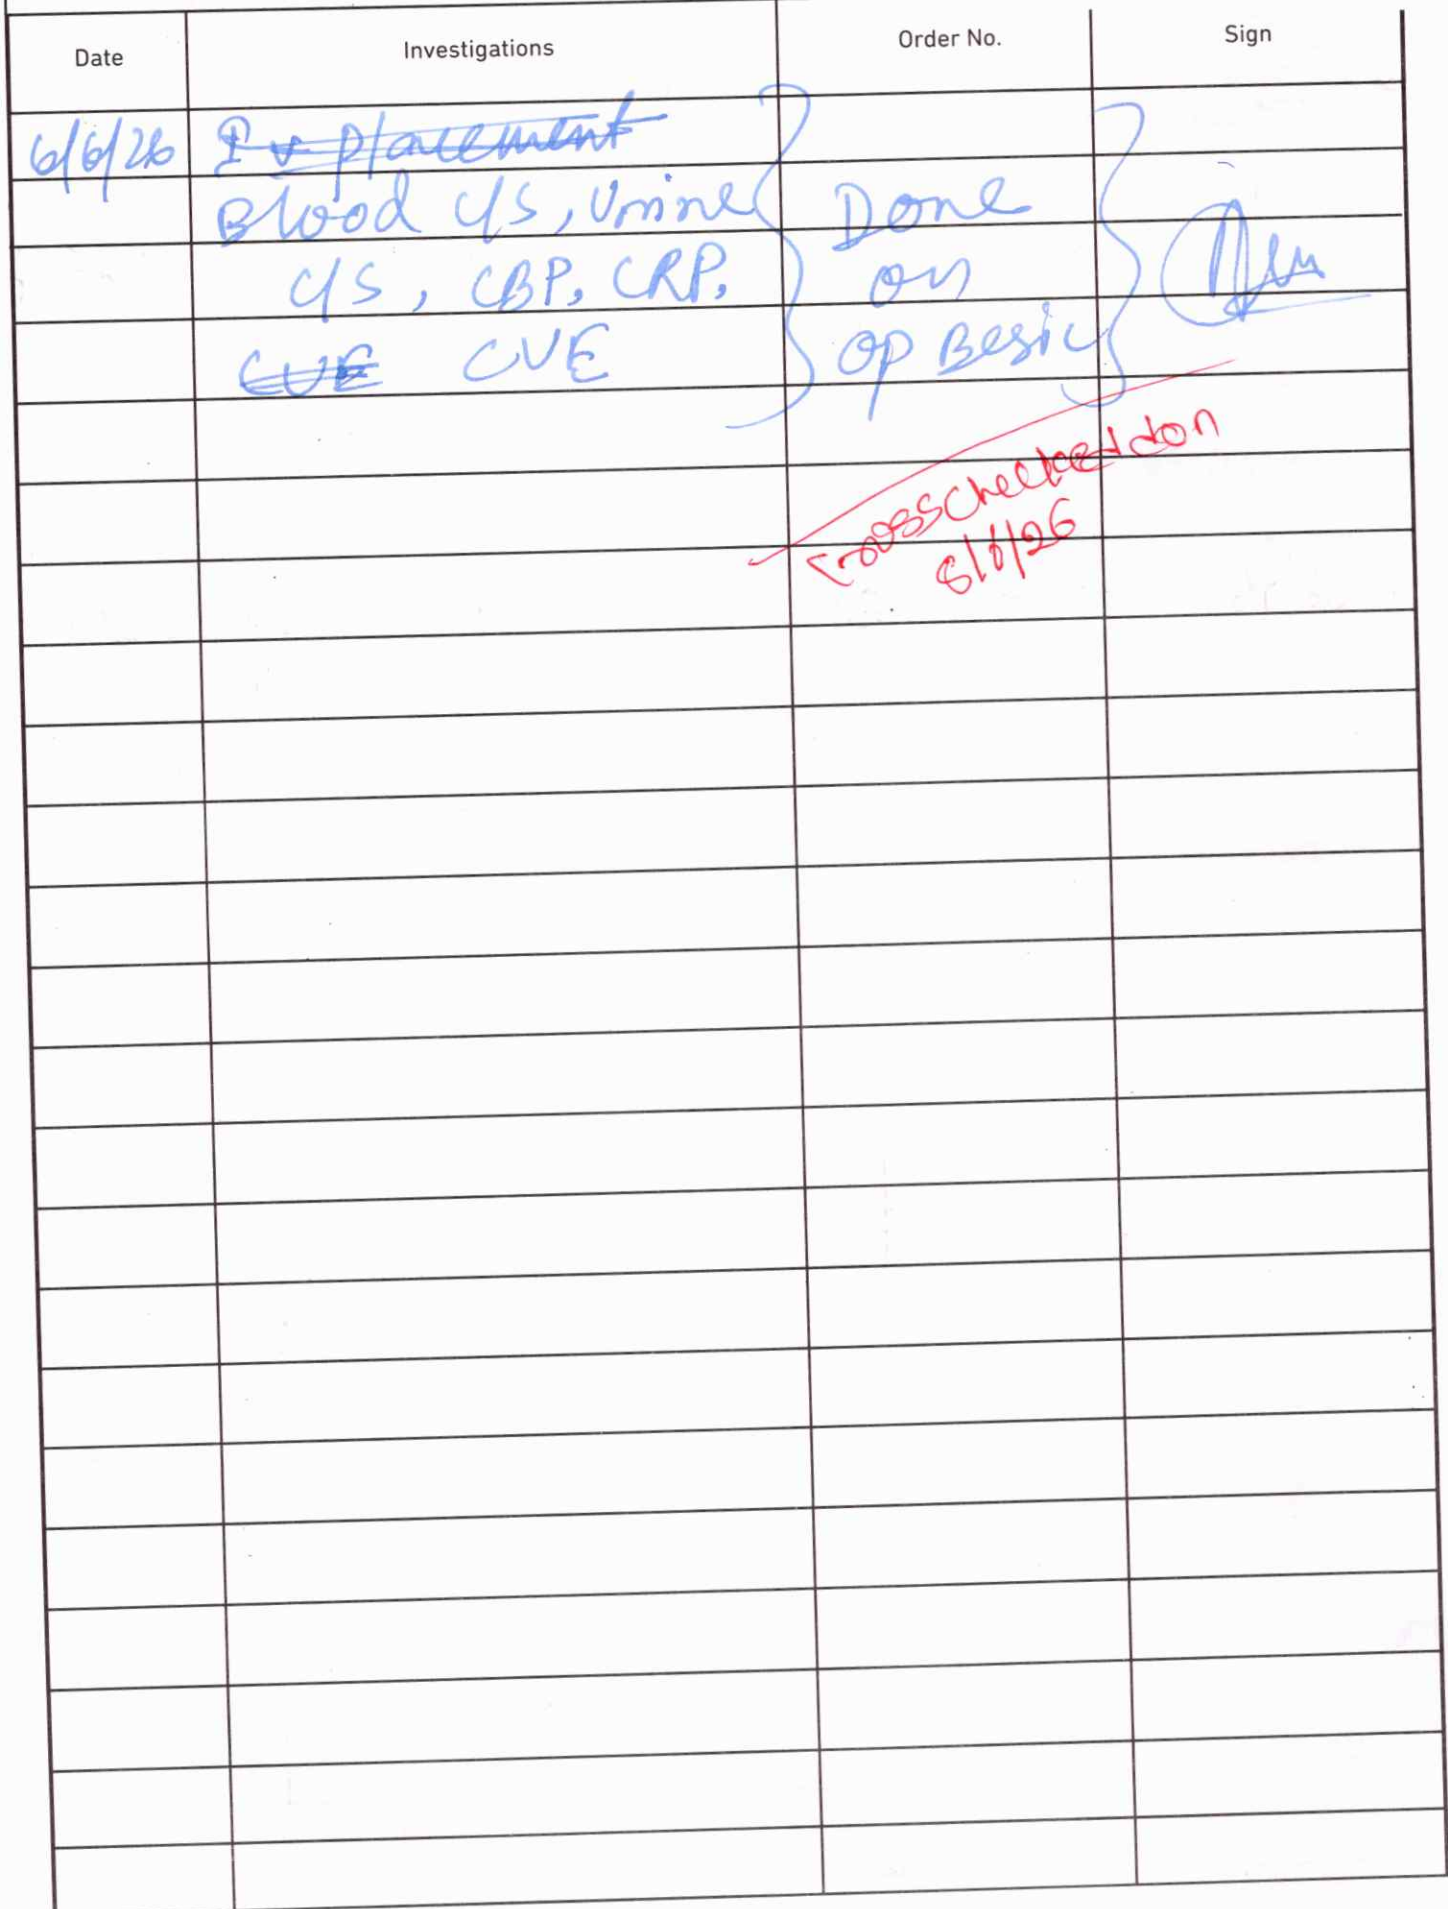 Date Investigations Order No. Sign
6/6/26 Iv placement
Blood c/s, Urine Done
c/s, CBP, CRP, on
CUE CUE OP Besic
Crosschecked don
8/6/26